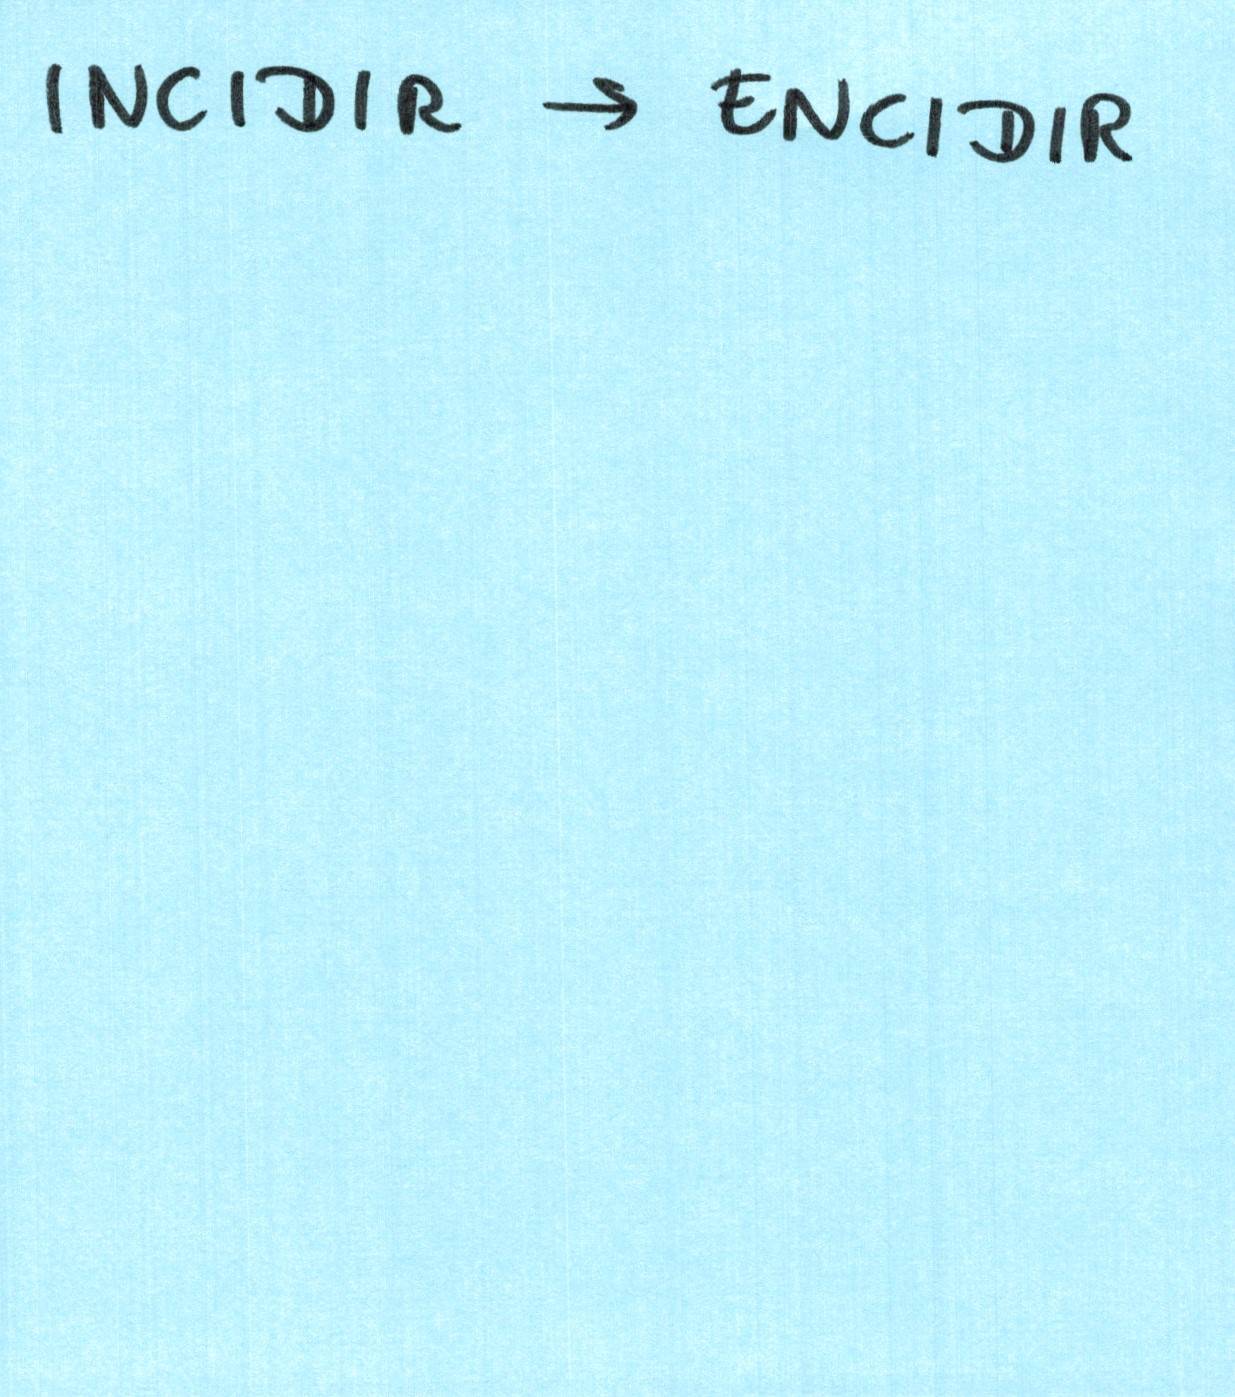 INCIDIR → ENCIDIR